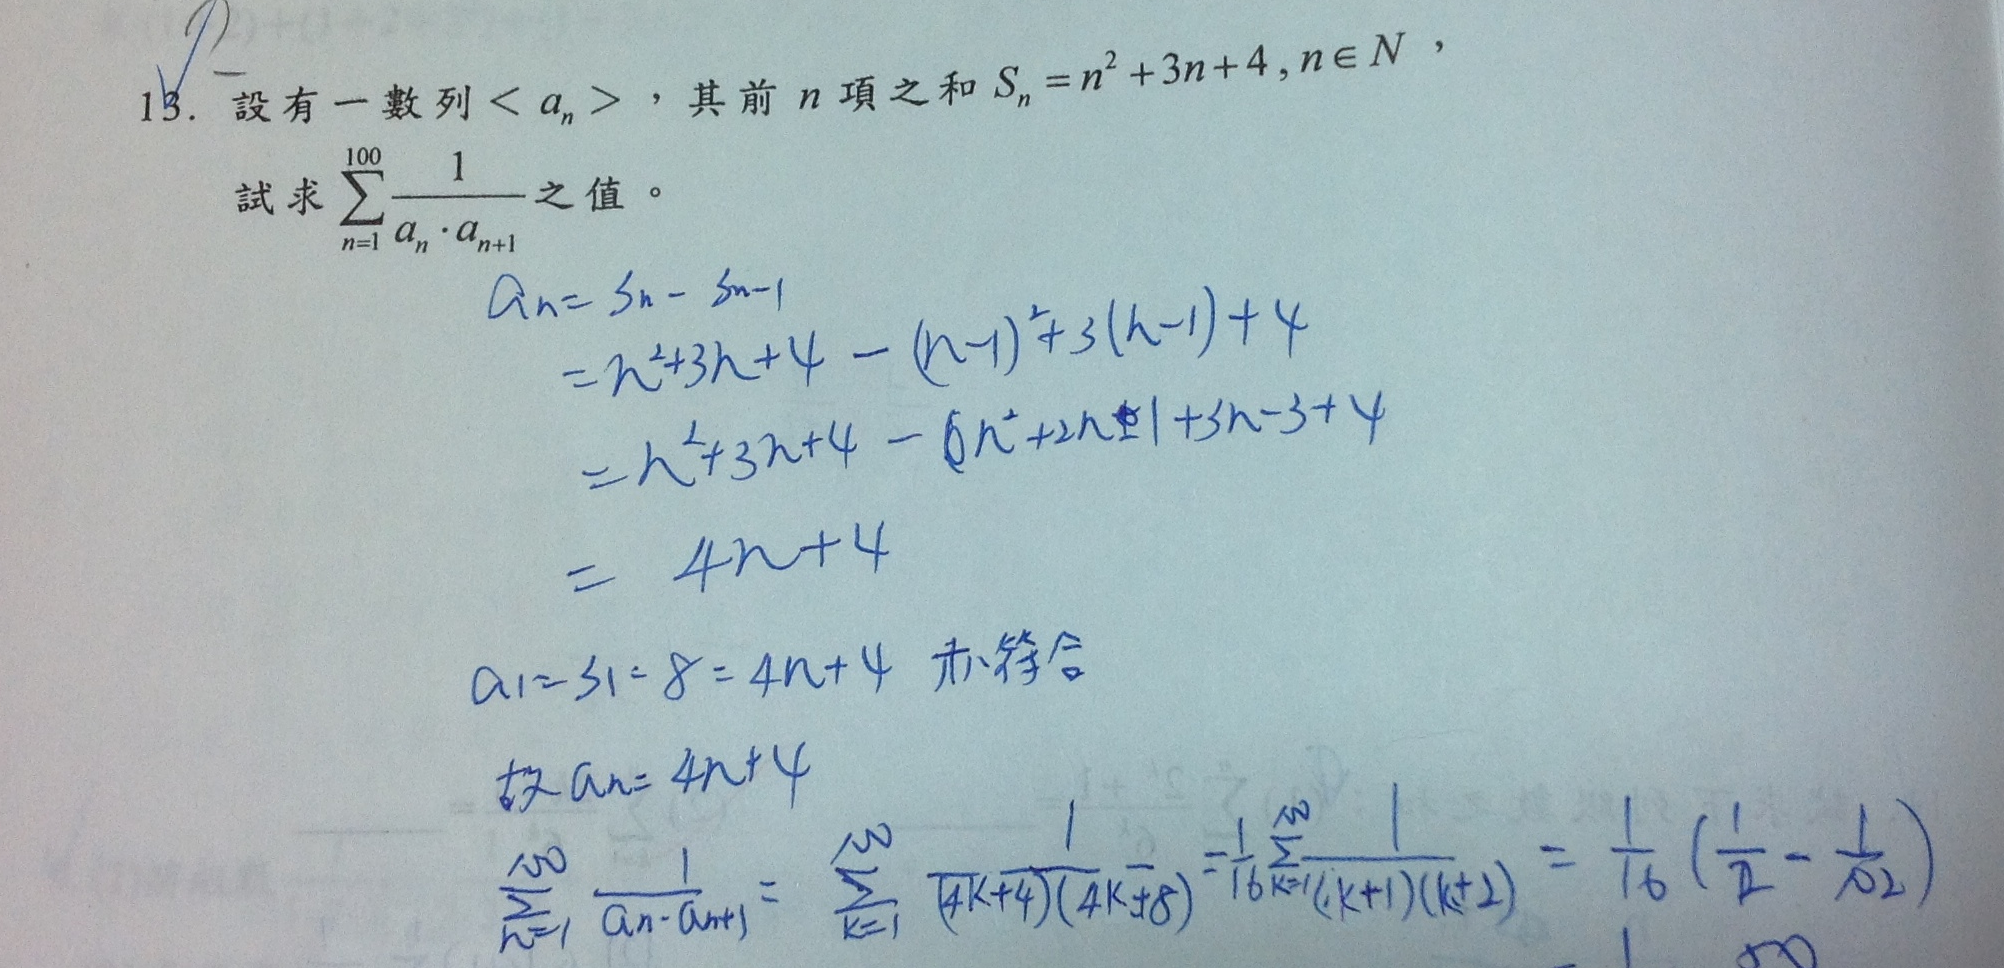 13. 設有一數列 < a_n >，其前 n 項之和 S_n = n² + 3n + 4 , n ∈ N ，
試求 \sum_{n=1}^{100} \frac{1}{a_n · a_{n+1}} 之值。
an = Sn - Sn-1
= n²+3n+4 - (n-1)²+3(n-1)+4
= n²+3n+4 - (n²+2n+1+3n-3+4
= 4n+4
a1 = S1 = 8 = 4n+4 亦符合
故 an = 4n+4
\sum_{n=1}^{100} \frac{1}{an·an+1} = \sum_{k=1}^{100} \frac{1}{(4k+4)(4k+8)} = \frac{1}{16} \sum_{k=1}^{100} \frac{1}{(k+1)(k+2)} = \frac{1}{16} (\frac{1}{2} - \frac{1}{102})